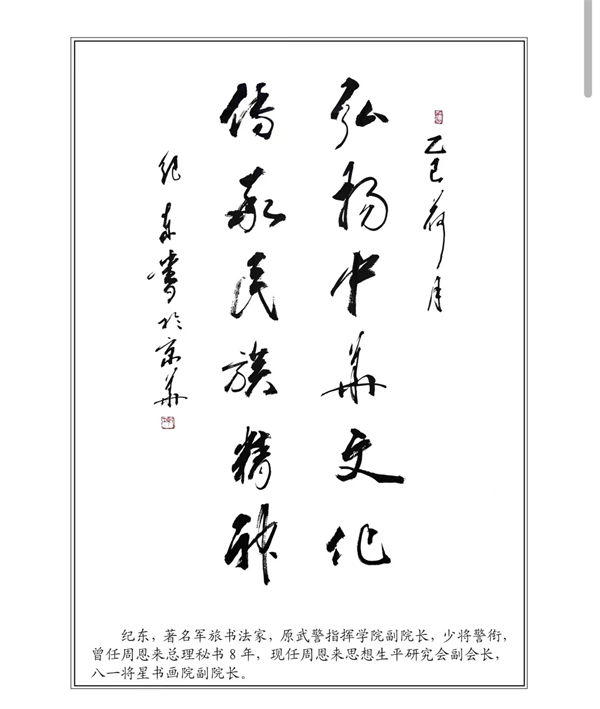 乙巳荷月
弘扬中華文化
傳承民族精神
纪东書於京華
纪东，著名军旅书法家，原武警指挥学院副院长，少将警衔，
曾任周恩来总理秘书8年，现任周恩来思想生平研究会副会长，
八一将星书画院副院长。